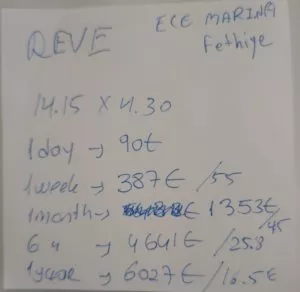 REVE
ECE MARINA
Fethiye
14.15 x 4.30
1 day → 90€
1 week → 387€ /55
1 month → € 1353€ /45
6 → 4641€ /25.8
1 year → 6027€ /16.5€